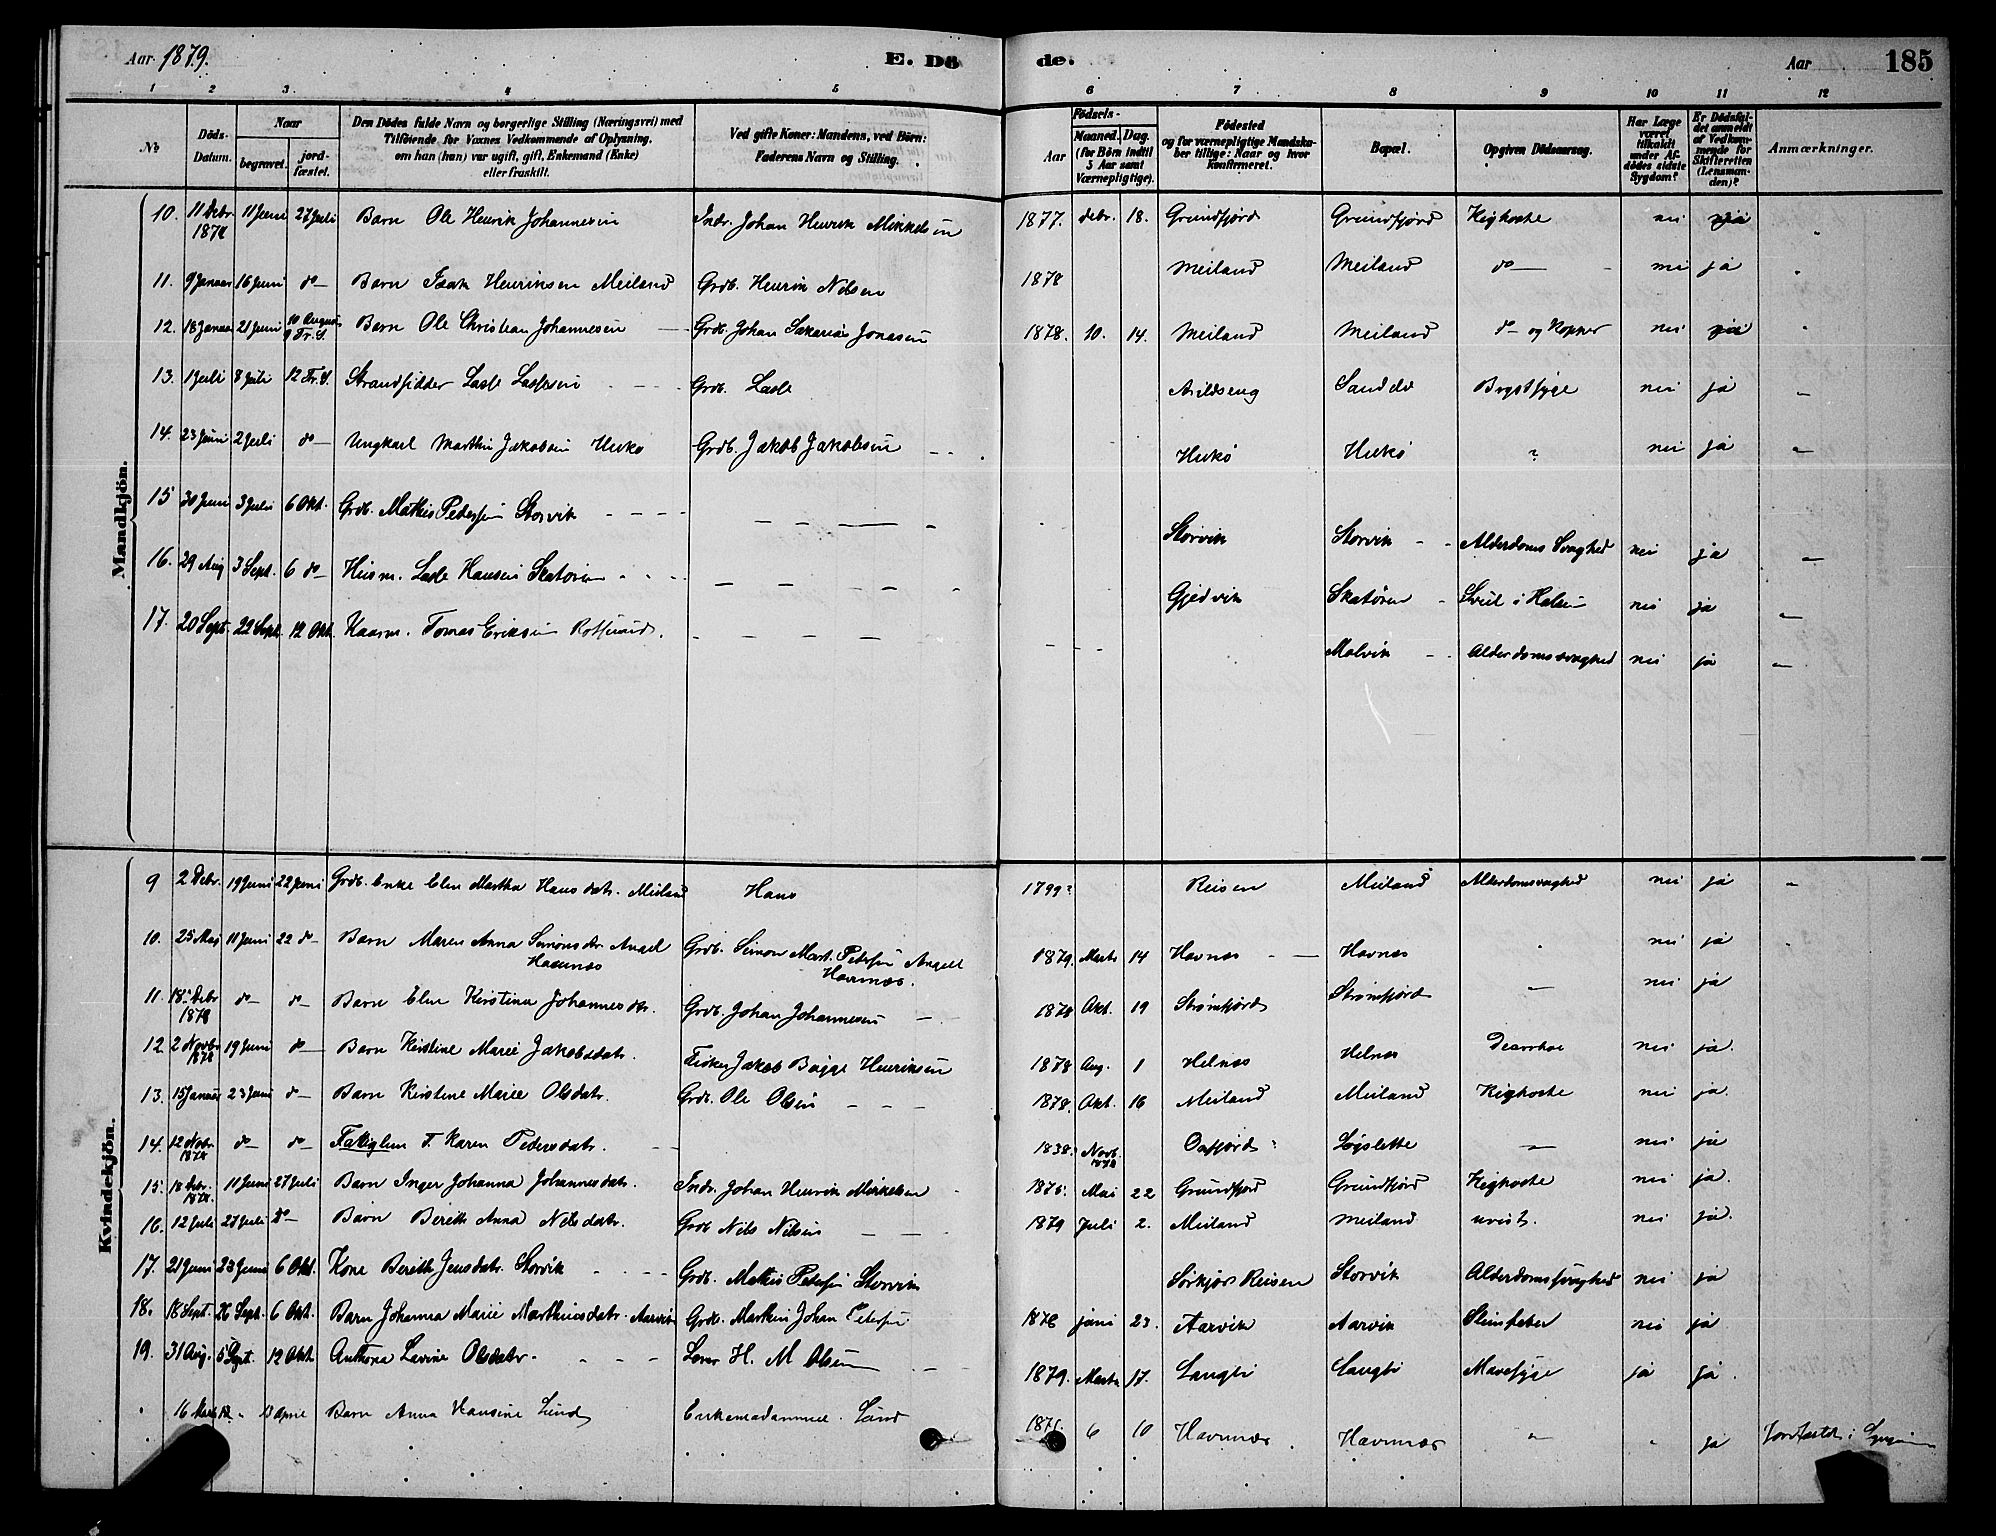 Aar 1879. E. Dö de. Aar 185
1 2 3. 4 5 6 7 8 9 10 11 12
No
Döds-
Datum.
Naar
begravet.
jord-
fæstet.
Den Dödes fulde Navn og borgerlige Stilling (Næringsvei) med
Tilföiende for Voxnes Vedkommende af Oplysning,
om han (hun) var ugift, gift, Enkemand (Enke)
eller fraskilt.
Ved gifte Koner: Mandens, ved Börn:
Faderens Navn og Stilling.
Födsels-
Aar
Maaned. Dag.
(for Börn indtil
5 Aar samt
Værnepligtige).
Födested
og for værnepligtige Mandska-
ber tillige: Naar og hvor
konfirmeret.
Bopæl.
Opgiven Dödsaarsag.
Har Læge
været
tilkaldt
under Af-
dödes sidste
Sygdom?
Er Dödsfal-
det anmeldt
af Vedkom-
mende for
Skifteretten
(Lensman-
den)?
Anmærkninger.
Mandkjön.
10. 11 Debr 1878 11 Juni 27 Juli Barn Ole Henrik Johannesen Indr. Johan Henrik Mikkelsen 1877. debr. 18. Grundfjord Grundfjord Kighoste nei ja
11. 9 Januar 16 Juni do Barn Isak Henriksen Meiland Grdb. Henrik Nilsen 1878 Meiland Meiland do nei ja
12. 18 Januar 21 Juni 10 August 9 Tr. S. Barn Ole Christian Johannesen Grdb. Johan Sakarias Jonasen 1878. 10. 14. Meiland Meiland do og Kopper nei ja
13. 1 Juli 8 Juli 12 Tr. S. Strandsidder Lasse Lassesen Grdb. Lasse Brystsyge nei ja
14. 23 Juni 2 Juli do Ungkarl Marthin Jakobsen Grdb. Jakob Jakobsen ? nei ja
15 30 Juni 3 Juli 6 Okt. Grdb. Mathis Pedersen Storvik Storvik Storvik Alderdoms Svaghed nei ja
16. 29 Aug 3 Sept. 6 do Husm. Lasse Hansen Skatøren Gjedvik Skatøren i Halsen nei ja
17. 20 Sept. 22 Sept. 12 Okt. Kaarm. Tomas Eriksen Rotsund. Molvik Alderdomssvaghed nei ja
Kvindekjön.
9 2 Debr. 19 Juni 22 Juni Grdb. Enke Elen Martha Hansdatr. Meiland Hans 1799? Reisen Meiland Alderdomsvaghed nei ja
10. 25 Mai 11 Juni 22 do Barn Maren Anna Simonsdr. Angel Havnnæs Grdb. Simon Mart. Petersen Angell Havnnæs. 1879. Marts 14 Havnæs Havnæs nei ja
11. 18 Debr 1878 do do Barn Elen Kirstina Johannesdtr. Grdb. Johan Johannesen 1878 Okt. 19 Strømfjord Strømfjord nei ja
12 2 Novbr 1878 19 Juni do Barn Kirstine Marie Jakobsdatr. Fisker Jakob Bugge Henriksen 1878 Aug. 1 Helnæs Helnæs nei ja.
13. 15 Januar 23 Juni do Barn Kirstine Marie Olsdatr. Grdb. Ole Olsen 1878. Okt. 16 Meiland Meiland Kighoste nei ja.
14. 12 Novbr 1878 do do Fattiglem F. Karen Pedersdatr. 1838. Novb. 1878 Oxfjord Løgslette nei ja
15. 18 Debr. 1878. 11 Juni 27 Juli Barn Inger Johanna Johannesdatr. Indr. Johan Henrik Mikkelsen 1875. Mai 22 Grundfjord Grundfjord Kighoste nei ja.
16. 12 Juli 27 Juli do Barn Bereth Anna Nilsdatr. Grdb. Nils Nilsen 1879 Juli 2. Meiland Meiland uvist. nei ja.
17. 21 Juni 23 Juni 6 Okt Kone Bereth Jensdatr. Storvik Grdb. Mathis Petersen Storvik Sørkjos Reisen Storvik Alderdomssvaghed nei ja
18. 18 Sept. 26 Sept. 6 Okt. Barn Johanna Marie Marthinsdatr. Aarvik Grdb. Marthin Johan Petersen 1876 juni 23. Aarvik Aarvik nei ja
19. 31 Aug. 5 Sept. 12 Okt Anthona Lavine Olsdatr. H. M. Olsen 1879. Marts 17. Langbi Langbi Mavesyge ja ja.
16 Marts 13 April Barn Anna Hansine Lund Enkemadamme Lund 6 10 Havnnæs Havnnæs ja Jordfæstet i